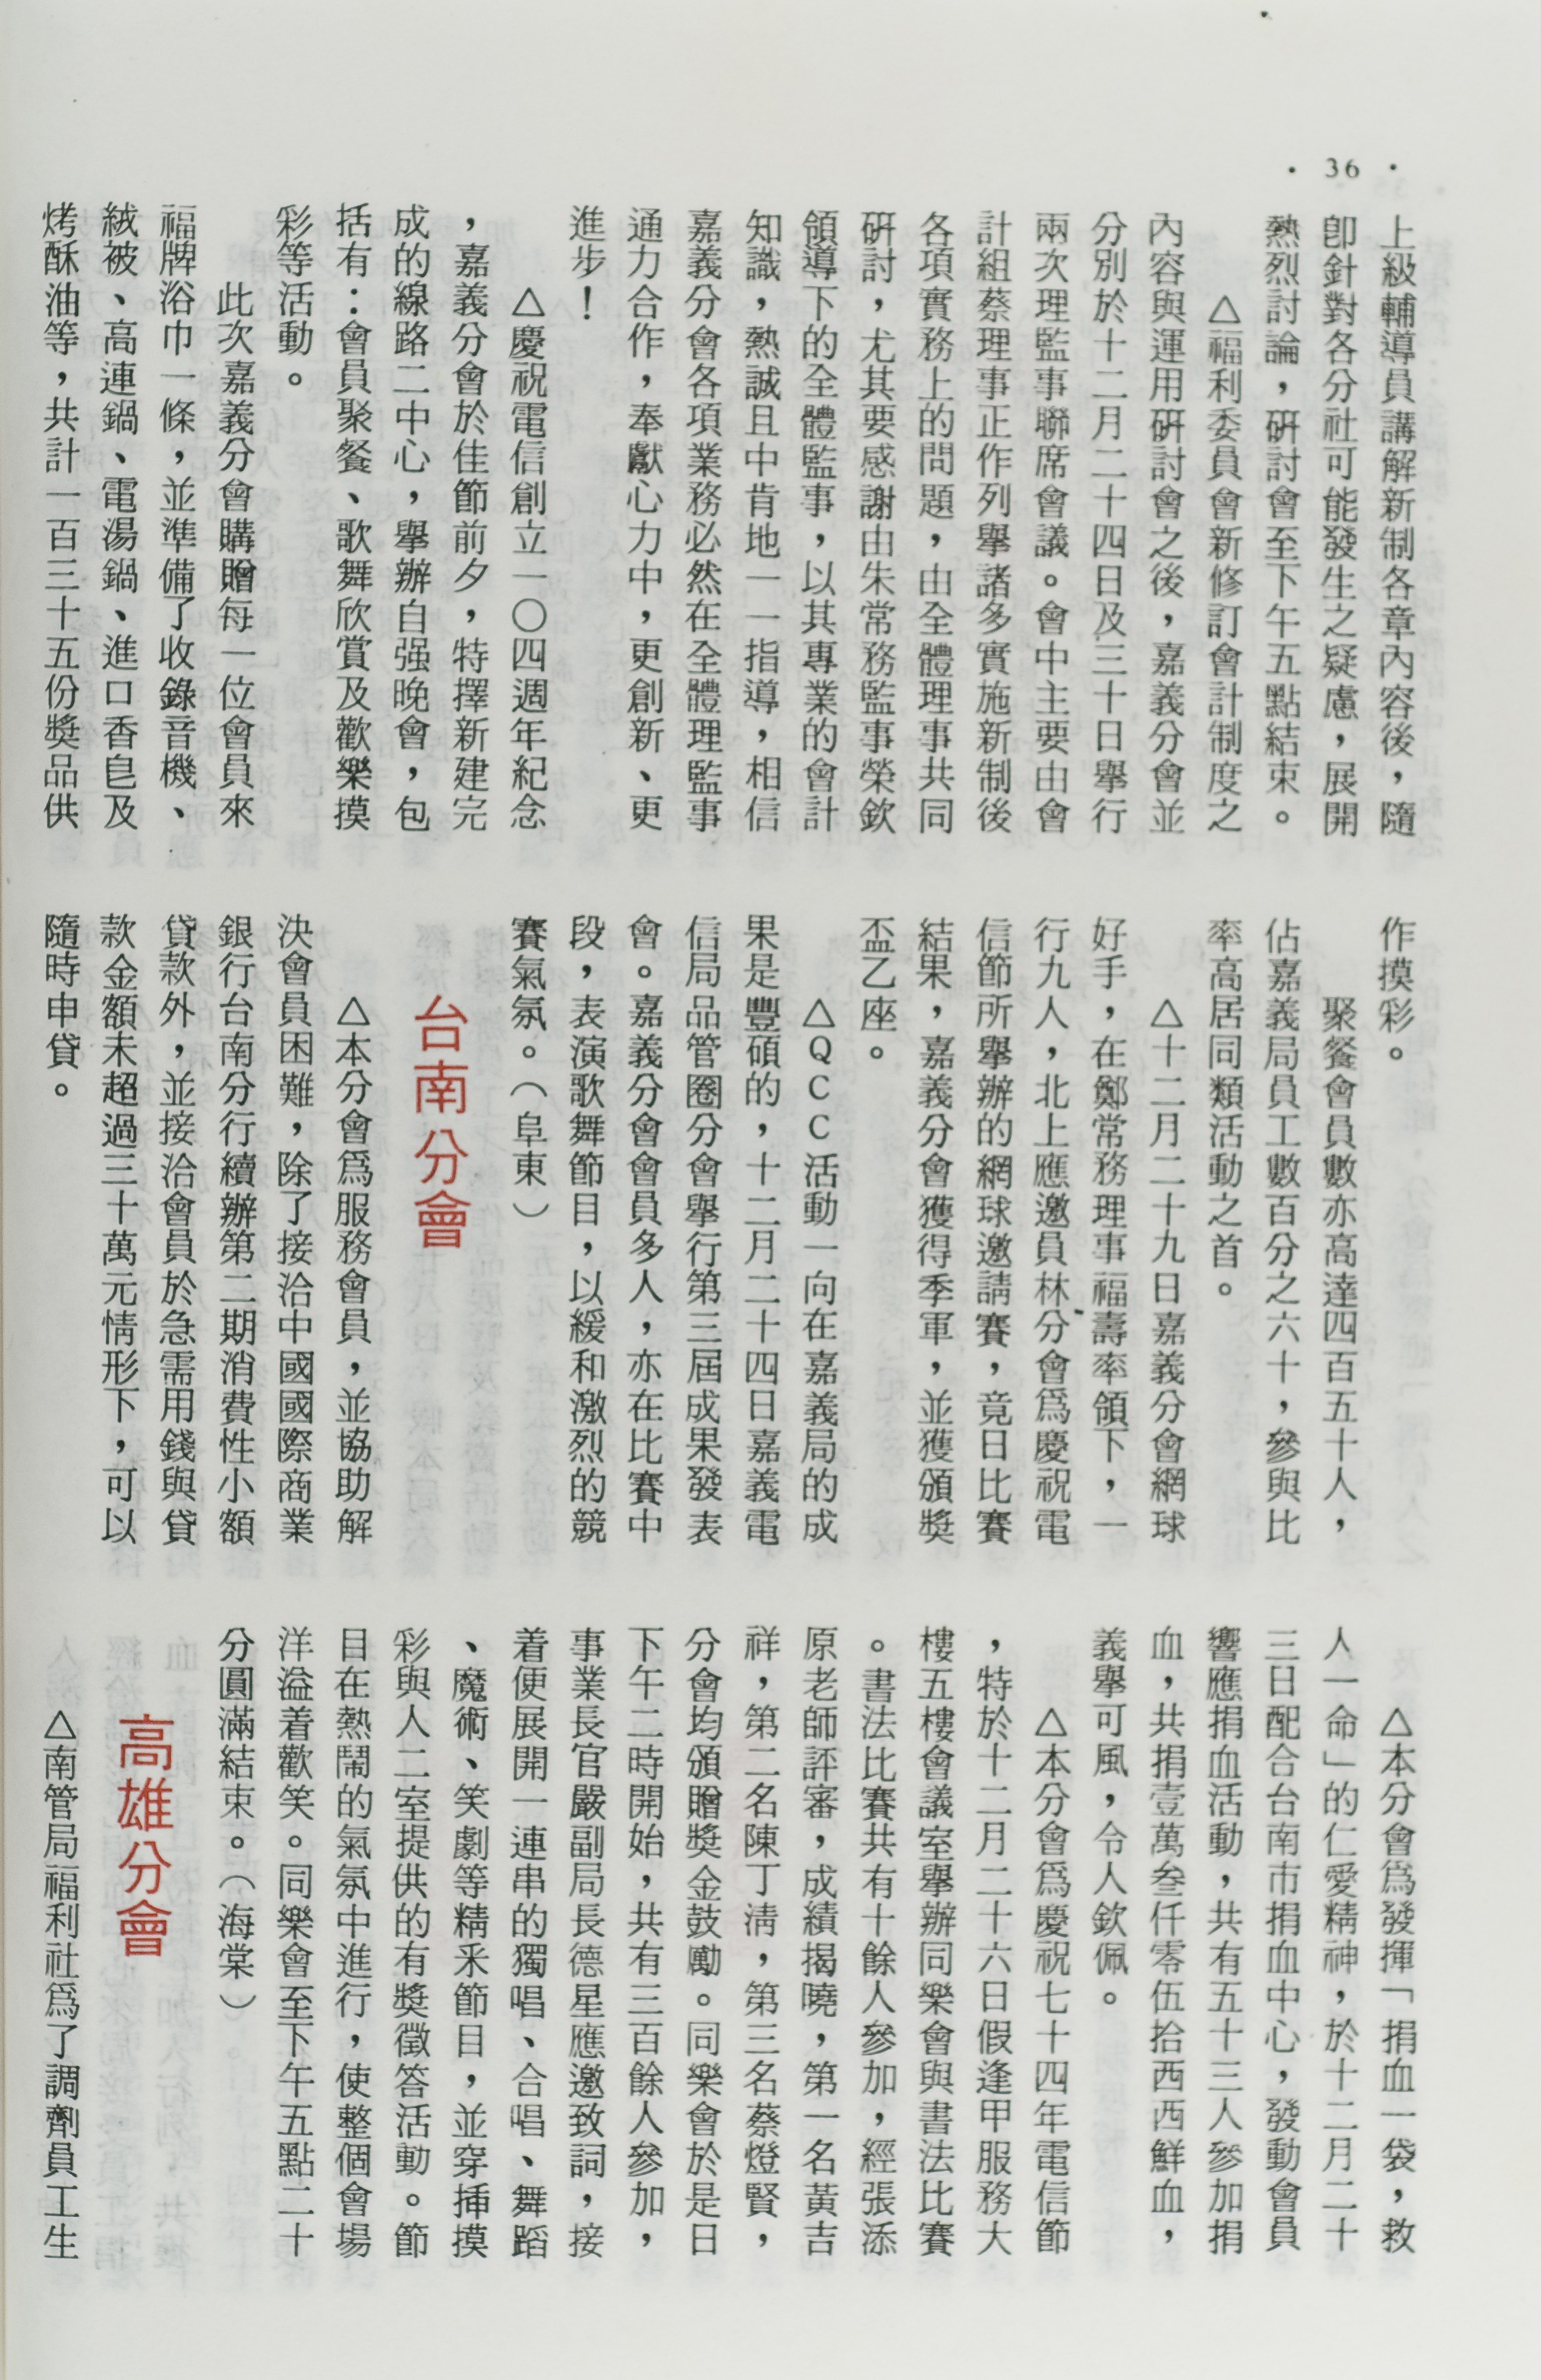 · 36 ·
上級輔導員講解新制各章內容後，隨
卽針對各分社可能發生之疑慮，展開
熱烈討論，硏討會至下午五點結束。
△福利委員會新修訂會計制度之
內容與運用硏討會之後，嘉義分會並
分別於十二月二十四日及三十日舉行
兩次理監事聯席會議。會中主要由會
計組蔡理事正作列舉諸多實施新制後
各項實務上的問題，由全體理事共同
硏討，尤其要感謝由朱常務監事榮欽
領導下的全體監事，以其專業的會計
知識，熱誠且中肯地一一指導，相信
嘉義分會各項業務必然在全體理監事
通力合作，奉獻心力中，更創新、更
進步！
△慶祝電信創立一〇四週年紀念
，嘉義分會於佳節前夕，特擇新建完
成的線路二中心，舉辦自强晚會，包
括有：會員聚餐、歌舞欣賞及歡樂摸
彩等活動。
此次嘉義分會購贈每一位會員來
福牌浴巾一條，並準備了收錄音機、
絨被、高連鍋、電湯鍋、進口香皂及
烤酥油等，共計一百三十五份獎品供
作摸彩。
聚餐會員數亦高達四百五十人，
佔嘉義局員工數百分之六十，參與比
率高居同類活動之首。
△十二月二十九日嘉義分會網球
好手，在鄭常務理事福壽率領下，一
行九人，北上應邀員林分會爲慶祝電
信節所舉辦的網球邀請賽，竟日比賽
結果，嘉義分會獲得季軍，並獲頒獎
盃乙座。
△ＱＣＣ活動一向在嘉義局的成
果是豐碩的，十二月二十四日嘉義電
信局品管圈分會舉行第三屆成果發表
會。嘉義分會會員多人，亦在比賽中
段，表演歌舞節目，以緩和激烈的競
賽氣氛。（阜東）
台南分會
△本分會爲服務會員，並協助解
決會員困難，除了接洽中國國際商業
銀行台南分行續辦第二期消費性小額
貸款外，並接洽會員於急需用錢與貸
款金額未超過三十萬元情形下，可以
隨時申貸。
△本分會爲發揮「捐血一袋，救
人一命」的仁愛精神，於十二月二十
三日配合台南市捐血中心，發動會員
響應捐血活動，共有五十三人參加捐
血，共捐壹萬叁仟零伍拾西西鮮血，
義舉可風，令人欽佩。
△本分會爲慶祝七十四年電信節
，特於十二月二十六日假逢甲服務大
樓五樓會議室舉辦同樂會與書法比賽
。書法比賽共有十餘人參加，經張添
原老師評審，成績揭曉，第一名黃吉
祥，第二名陳丁淸，第三名蔡燈賢，
分會均頒贈獎金鼓勵。同樂會於是日
下午二時開始，共有三百餘人參加，
事業長官嚴副局長德星應邀致詞，接
着便展開一連串的獨唱、合唱、舞蹈
、魔術、笑劇等精釆節目，並穿揷摸
彩與人二室提供的有獎徵答活動。節
目在熱鬧的氣氛中進行，使整個會場
洋溢着歡笑。同樂會至下午五點二十
分圓滿結束。（海棠）
高雄分會
△南管局福利社爲了調劑員工生